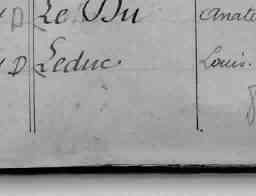 D Le Du Anato
D Leduc Louis.